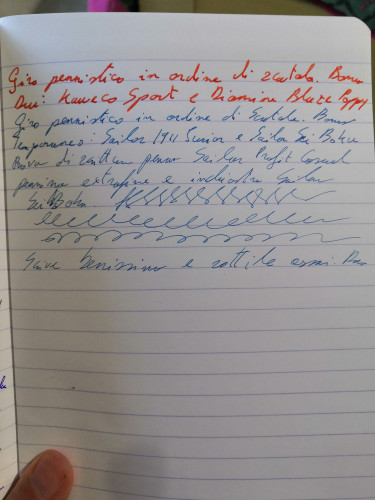 Giro pennistico in ordine di scatola. Bonus
Due: Kaweco Sport e Diamine Blaze Poppy
Giro pennistico in ordine di Scatola. Bonus
Temporaneo: Sailor 1911 Junior e Sailor Sei Boku
Prova di scrittura penna Sailor Profit Casual
pennino extrafine e inchiostro Sailor
Sei Boku
Scrive benissimo e sottile assai.